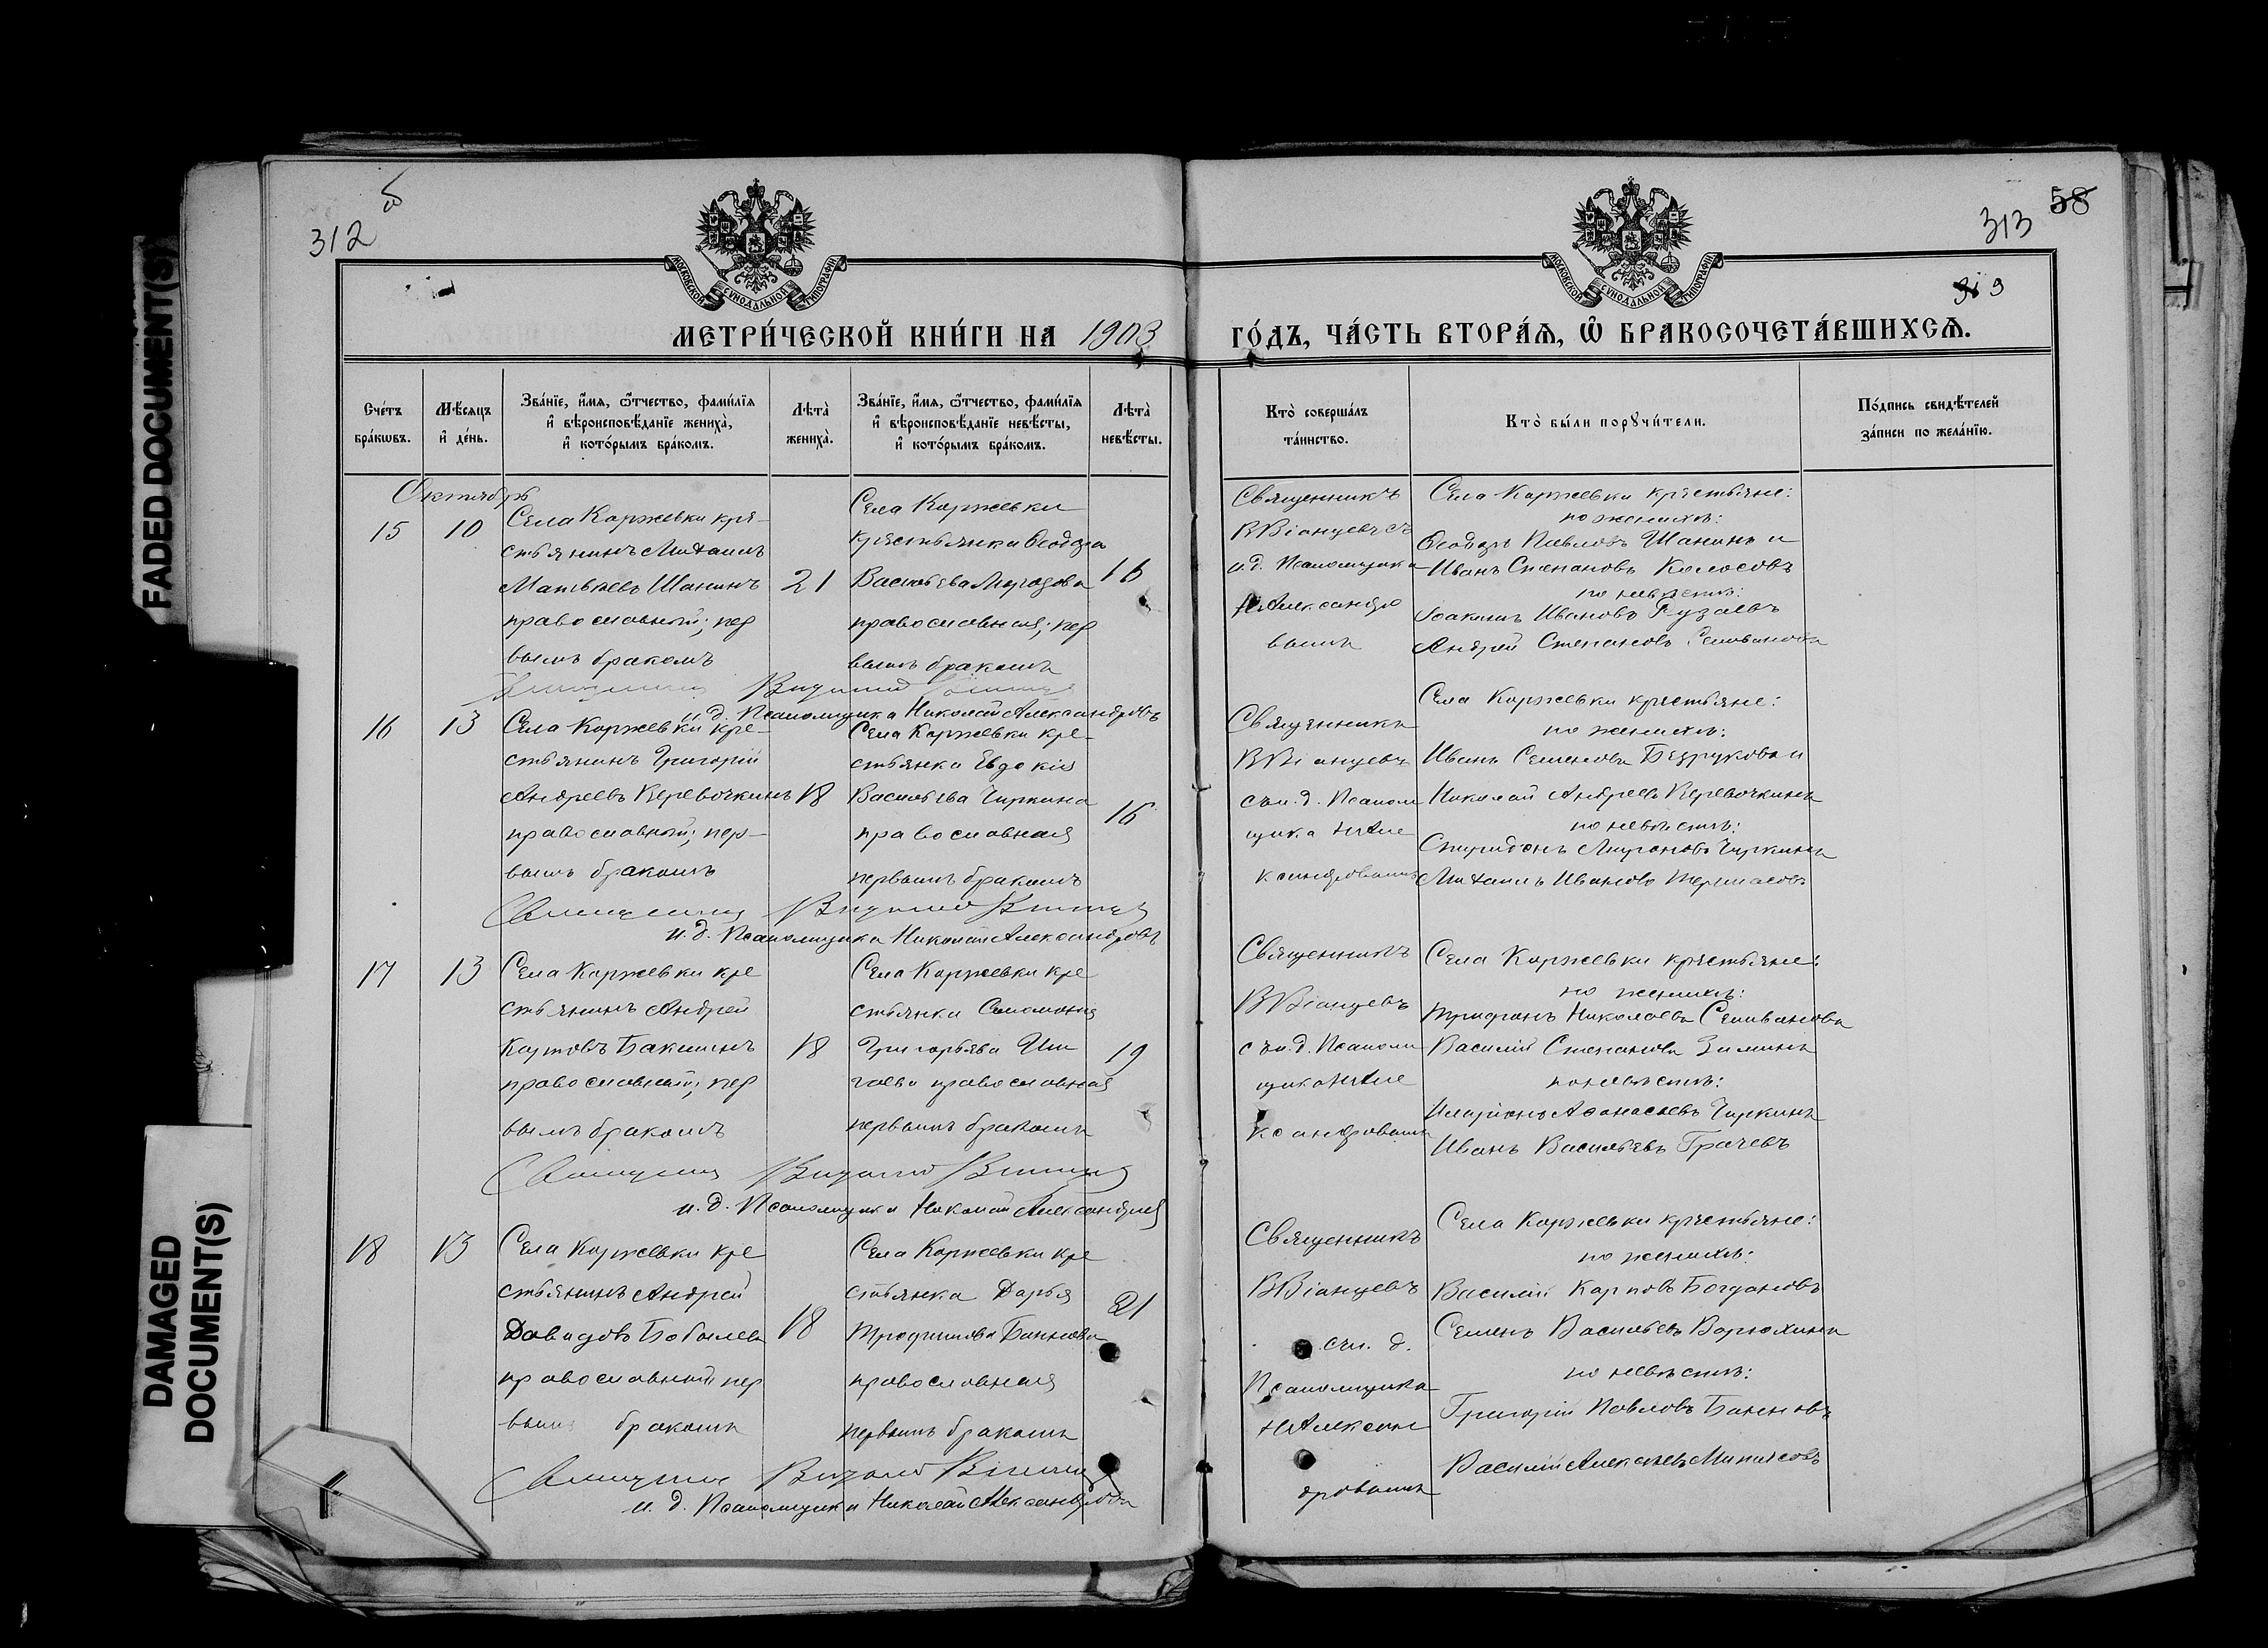 FADED DOCUMENT(S)
DAMAGED
DOCUMENT(S)
312
313
58
9
МОСКОВСКОЙ СѴНОДАЛЬНОЙ ТИПОГРАФІИ
МОСКОВСКОЙ СѴНОДАЛЬНОЙ ТИПОГРАФІИ
МЕТРИ́ЧЕСКОЙ КНИ́ГИ НА 1903
ГО́ДЪ, ЧА́СТЬ ВТОРА́Ѧ, Ѽ БРАКОСОЧЕТА́ВШИХСѦ.
Сче́тъ
бра́кѡвъ.
Мѣ́сѧцъ
и҆ де́нь.
Зва́нїе, и҆́мѧ, ѻ҆́тчество, фами́лїѧ
и҆ вѣроисповѣ́данїе жениха̀,
и҆ кото́рымъ бра́комъ.
Лѣта̀
жениха̀.
Зва́нїе, и҆́мѧ, ѻ҆́тчество, фами́лїѧ
и҆ вѣроисповѣ́данїе невѣ́сты,
и҆ кото́рымъ бра́комъ.
Лѣта̀
невѣ́сты.
Кто̀ соверша́лъ
та́инство.
Кто̀ бы́ли порꙋчи́тели.
По́дпись свидѣ́телей
за́писи по жела́нїю.
Октябрь
15
10
Села Коржевки кре-
стьянинъ Михаилъ
Матвѣевъ Шанинъ
православный; пер
вымъ бракомъ
21
Села Коржевки
крестьянка Ѳеодора
Васильева
православная; пер
вымъ бракомъ
16
Священникъ
В Віанцевъ съ
и. д. Псаломщика
Н Александро
вымъ
Села Коржевки крестьяне:
по женихѣ:
Ѳеодоръ Павловъ Шанинъ и
Иванъ Степановъ Колосовъ
по невѣстѣ:
Іоакимъ Ивановъ Рузаевъ
Андрей Степановъ Селивановъ
и. д. Псаломщика Николай Александровъ
16
13
Села Коржевки кре-
стьянинъ Григорій
Андреевъ Веревочкинъ
православный; пер-
вымъ бракомъ
18
Села Коржевки кре-
стьянка Евдокія
Васильева Чиркина
православная
первымъ бракомъ
16
Священникъ
В Віанцевъ
съ и. д. Псалом
щика Н Але
ксандровымъ
Села Коржевки крестьяне:
по женихѣ:
Иванъ Семеновъ Безруковъ и
Николай Андреевъ Веревочкинъ
по невѣстѣ:
Спиридонъ Мироновъ Чиркинъ
Михаилъ Ивановъ
Священникъ
и. д. Псаломщика Николай Александровъ
17
13
Села Коржевки кре
стьянинъ Андрей
Карповъ Бакшинъ
православный; пер
вымъ бракомъ
18
Села Коржевки кре
стьянка Соломонія
Григорьева
православная
первымъ бракомъ
19
Священникъ
В Віанцевъ
съ и. д. Псалом
щика Н Але
ксандровымъ
Села Коржевки крестьяне:
по женихѣ:
Трифонъ Николаевъ Селивановъ
Василій Степановъ Зиминъ
по невѣстѣ:
Иларіонъ Аѳанасьевъ Чиркинъ
Иванъ Васильевъ Грачевъ
Священникъ
и. д. Псаломщика Николай Александровъ
18
13
Села Коржевки кре
стьянинъ Андрей
Давидовъ Бобылевъ
православный пер
вымъ бракомъ
18
Села Коржевки кре
стьянка Дарья
Трофимова Баннова
православная
первымъ бракомъ
21
Священникъ
В Віанцевъ
съ и. д.
Псаломщика
Н Алексан
дровымъ
Села Коржевки крестьяне:
по женихѣ:
Василій Карповъ Богдановъ
Семенъ Васильевъ Варюхинъ
по невѣстѣ:
Григорій Павловъ Банновъ
Василій Алексѣевъ
Священникъ
и. д. Псаломщика Николай Александровъ